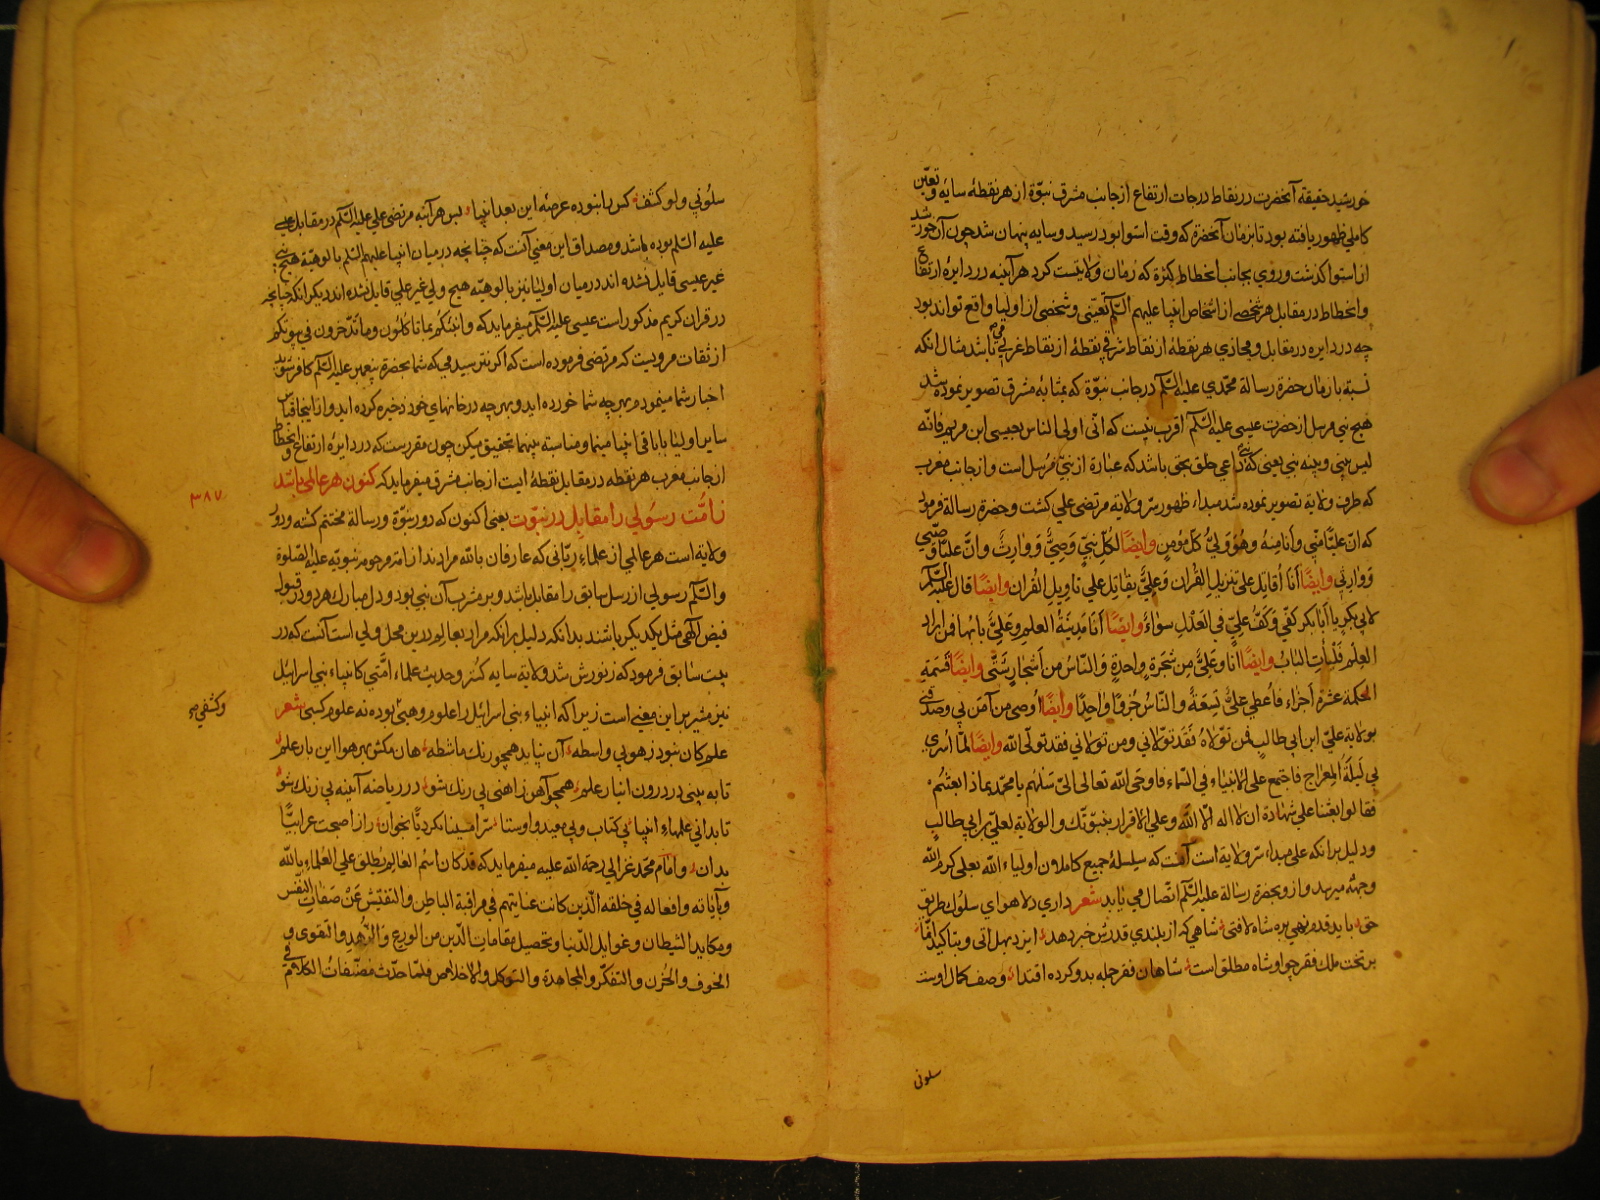 خورشید حقیقة آنحضرت در نقاط درجات ارتفاع از جانب مشرق نبوّة از هر نقطهٔ سایهٔ و تعیّن
کاملی ظهور یافته بود تا بزمان آنحضرة که وقت استوا بود رسید و سایه پنهان شد چون آن خورشید
از استوا کذشت و روی بجانب انحطاط کثرة که زمان ولایتست کرد هر آینه در دایرهٔ ارتفاع
وانحطاط در مقابل هر شخصی از اشخاص انبیا علیهم السّلم تعینی و شخصی از اولیا واقع تواند بود
چه در دایره در مقابل و محاذی هر نقطهٔ از نقاط شرقی نقطهٔ از نقاط غربی می باشد مثال انکه
نسبة با زمان حضرة رسالة محمّدی علیه السّلم در جانب نبوّة که بمثابهٔ مشرق تصویر نموده شد
هیچ نبی مرسل از حضرت عیسی علیه السّلم اقرب نیست که انّی اولی الناس بعیسی ابن مریم فانّه
لیس بینی و بینه نبی یعنی که نبی داعی خلق بحق باشد که عبارة از نبیّ مُرسل است و از جانب مغرب
که طرف ولایة تصویر نموده شد مبداء ظهور سرّ ولایة مرتضی علی کشت و حضرة رسالة فرمود
که انّ علیًّا منّی وأنا مِنهُ وهُوَ وَلِیُّ کلّ مؤمنٍ وایضًا لکلّ نبیٍّ وَصِیٌّ وَوارِثٌ وانَّ علیًّا وَصِیّی
وَوارِثِی وایضًا أنَا أُقاتِل علی تنزیلِ القُرآن وَعَلِیٌّ یقاتِل علی تاوِیلِ القُران وایضًا قال علیه السّلم
لابی بکرٍ یا أبَا بَکر کفّی وَکَفُّ علیٍّ فی العَدْلِ سَواءٌ وایضًا أنَا مَدِینَةُ العلمِ وعَلِیٌّ بابُها فمن ارادَ
العِلمَ فَلیَأتِ البَابَ وایضًا أنا وعَلِیٌّ مِن شَجَرةٍ واحِدةٍ وَالنّاسُ من أشجارٍ شَتّی وایضًا قُسّمَتِ
الحِکمة عشرة أجزاء فاُعطِیَ علیٌّ تِسعَةً والنّاسُ جُزءًا واحِدًا وایضًا اُوصِی من آمَنَ بی وصدّقنی
بولایة علیّ ابن ابی طالبٍ فمن تَوَلّاهُ فَقَد تَوَلّانی ومن تولّانی فقد تولّی الله وایضًا لمّا اُسرِیَ
بی لَیلَةَ المِعراج فاجتمع علیَّ الانبیاء فی السّماء فاوحَی الله تعالی الیّ سَلهُم یا محمّد بماذا بعثتُم
فقالوا بعثنا علی شهادة ان لااله الّا الله وعلی الاقرار بنبوّتک والولایة لعلیّ بن ابی طالبٍ
ودلیل بر انکه علی مبداء سرّ ولایة است آنست که سلسلهٔ جمیع کاملون اولیاء الله بعلی کرم الله
وجهه میرسد و از و بحضرة رسالة علیه السّلم اتّصال می یابد شعر داری دلا هوای سلوک طریق
حق باید قدم نهی بره شاه لافتی شاهی که از بلندی قدرش خبر دهد ایزد بهل اتی و بتاکید انّما
بر تخت ملک فقر چو او شاه مطلق است شاهان فقر جمله بدو کرده اقتدا وصف کمال اوست
سلونی
سلُونی ولو کُشف کس را نبوده مرتبهٔ این بعد انبیا پس هر آینه مرتضی علی علیه السّلم در مقابل عیسی
علیه السّلم بوده باشد و مصداق این معنی آنست که چنانچه در میان انبیا علیهم السّلم بالوهیّة هیچ نبی
غیر عیسی قایل نشده اند در میان اولیا نیز بالوهیّه هیچ ولی غیر علی قایل نشده اند دیکر انکه چنانچه
در قران کریم مذکور است عیسی علیه السّلم میفرماید که وانبئکم بما تاکلون وما تدّخرون فی بیوتکم
از ثقات مرویست که مرتضی فرموده است که اکر نترسیدمی که شما بحضرة پیغمبر علیه السّلم کافر شوید
اخبار شما مینمودم بهر چه شما خورده اید و بهر چه در خانهای خود ذخیره کرده اید و از اینجا قیاس
سایر اولیا با باقی انبیا مینما ومناسبة بینهما تحقیق میکن چون مقررست که در دایرهٔ ارتفاع و انحطاط
از جانب مغرب هر نقطه در مقابل نقطهٔ ایست از جانب مشرق میفرماید که کنون هر عالمی باشد
ز امّت رسُولی را مقابِل در نبوّت یعنی اکنون که دور نبوّة و رسالة مختتم کشته و دور
ولایة است هر عالمی از علماءِ ربّانی که عارفان بالله مرادند از امّة مرحومهٔ نبویّه علیه الصّلوة
والسّلم رسولی از رسل سابق را مقابل باشد و بر مشرب آن نبی بود و دل مبارک هر دو در قبول
فیض الهی مثل یکدیکر باشند بدانکه دلیل بر انکه مراد بعالِم در این محل ولی است آنست که در
بیت سابق فرمود که ز نورش شد ولایة سایه کستر وحدیث علماء امّتی کانبیاء بنی اسرائیل
نیز مشیر بر این معنی است زیرا که انبیاء بنی اسرائیل را علوم وهبی بوده نه علوم کسبی شعر
علم کان نبود ز هو بی واسطه آن نپاید همچو رنک ماشطه هان مکش بهر هوا این بار علم
تا به بینی در درون انبار علم همچو آهن ز اهنی بی رنک شو در ریاضه آینه بی زنک شو
تا بدانی علمهاء انبیا بی کتاب و بی معید و اوستا سرّ امسینا لکردیًّا بخوان راز اصبحت عرابیًّا
بدان وامام محمّد غزالی رحمة الله علیه میفرماید که قد کان اسم العالِم یُطلق علی العُلماء بالله
وبآیاته وافعاله فی خلقه الّذین کانت عنایتهم فی مراقبة الباطِن والتفتیش عَنْ صفاتِ النّفس
ومکاید الشیطان وغوایل الدّنیا وتحصیل مقامات الدّین من الورع والزُّهد والتقوی و
الخوف والحُزن والتفکّر والمجاهدة والتوکّل والاخلاص فلمّا حدّث مُصنّفاتُ الکلام فی
۳۸۷
وکشفی صح